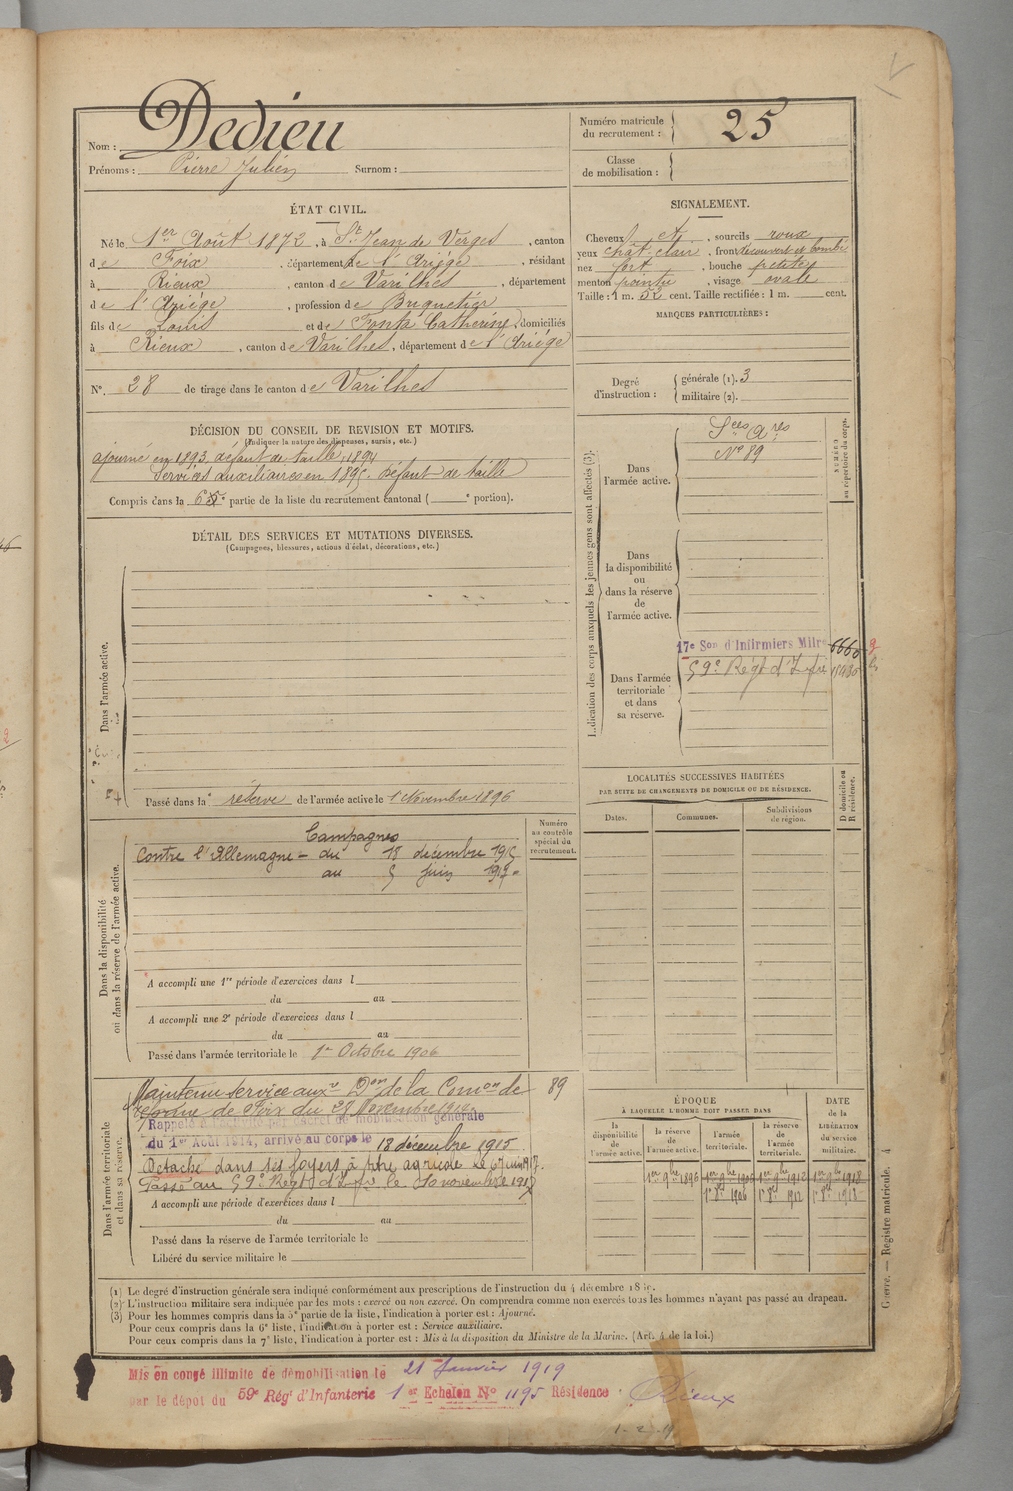 Nom : Dedieu
Prénoms : Pierre Julien Surnom :
Numéro matricule
du recrutement : 25
Classe
de mobilisation :
ÉTAT CIVIL.
Né le 1er Août 1872, à St Jean de Verges, canton
de Foix, département de l'Ariège, résidant
à Rieux, canton de Varilhes, département
de l'Ariège, profession de Briquetier
fils de Louis et de Fonta Catherine, domiciliés
à Rieux, canton de Varilhes, département de l'Ariège
N° 28 de tirage dans le canton de Varilhes
SIGNALEMENT.
Cheveux et, sourcils roux
yeux chât. clair, front découvert et bombé
nez fort, bouche petite
menton pointu, visage ovale
Taille : 1 m. 52 cent. Taille rectifiée : 1 m. cent.
MARQUES PARTICULIÈRES :
Degré
d'instruction :
générale (1). 3
militaire (2).
DÉCISION DU CONSEIL DE REVISION ET MOTIFS.
(Indiquer la nature des dispenses, sursis, etc.)
ajourné en 1893, défaut de taille, 1894
Services auxiliaires en 1895. Défaut de taille
Compris dans la 6e partie de la liste du recrutement cantonal ( e portion).
DÉTAIL DES SERVICES ET MUTATIONS DIVERSES.
(Campagnes, blessures, actions d'éclat, décorations, etc.)
Dans l'armée active.
Passé dans la réserve de l'armée active le 1 Novembre 1896
Indication des corps auxquels les jeunes gens sont affectés (3).
NUMÉRO
au répertoire du corps.
Dans
l'armée active.
Sces Ares
N° 89
Dans
la disponibilité
ou
dans la réserve
de
l'armée active.
Dans l'armée
territoriale
et dans
sa réserve.
17e Son d'Infirmiers Mitres 6660
59e Régt d'Infie
LOCALITÉS SUCCESSIVES HABITÉES
PAR SUITE DE CHANGEMENTS DE DOMICILE OU DE RÉSIDENCE.
Dates.
Communes.
Subdivisions
de région.
D domicile ou
R résidence.
Dans la disponibilité
ou dans la réserve de l'armée active.
Numéro
au contrôle
spécial du
recrutement.
Campagnes
Contre l'Allemagne - du 18 décembre 1915
au 5 juin 1917
A accompli une 1re période d'exercices dans l
du au
A accompli une 2e période d'exercices dans l
du au
Passé dans l'armée territoriale le 1er Octobre 1906
Dans l'armée territoriale
et dans sa réserve.
Maintenu service auxre Don de la Comon de 89
réforme de Foix du 28 Novembre 1914
Rappelé à l'activité par décret de mobilisation générale
du 1er Août 1914, arrivé au corps le 18 décembre 1915
Détaché dans ses foyers à titre agricole le 6 juin 1917.
Passé au 59e Régt d'Infie le 10 novembre 1917
A accompli une période d'exercices dans l
du au
Passé dans la réserve de l'armée territoriale le
Libéré du service militaire le
ÉPOQUE
À LAQUELLE L'HOMME DOIT PASSER DANS
la
disponibilité
de
l'armée active.
la réserve
de
l'armée active.
l'armée
territoriale.
la réserve
de
l'armée
territoriale.
DATE
de la
LIBÉRATION
du service
militaire.
1er 9bre 1896 1er 9bre 1906 1er 9bre 1912 1er 9bre 1918
1er 8bre 1906 1er 8bre 1912 1er 8bre 1918
(1) Le degré d'instruction générale sera indiqué conformément aux prescriptions de l'instruction du 4 décembre 18
(2) L'instruction militaire sera indiquée par les mots : exercé ou non exercé. On comprendra comme non exercés tous les hommes n'ayant pas passé au drapeau.
(3) Pour les hommes compris dans la 5e partie de la liste, l'indication à porter est : Ajourné.
Pour ceux compris dans la 6e liste, l'indication à porter est : Service auxiliaire.
Pour ceux compris dans la 7e liste, l'indication à porter est : Mis à la disposition du Ministre de la Marine. (Art. 4 de la loi.)
Guerre. — Registre matricule. 4
Mis en congé illimité de démobilisation le 21 Janvier 1919
par le dépôt du 59e Régt d'Infanterie 1er Echelon N° 1195 Résidence : Rieux